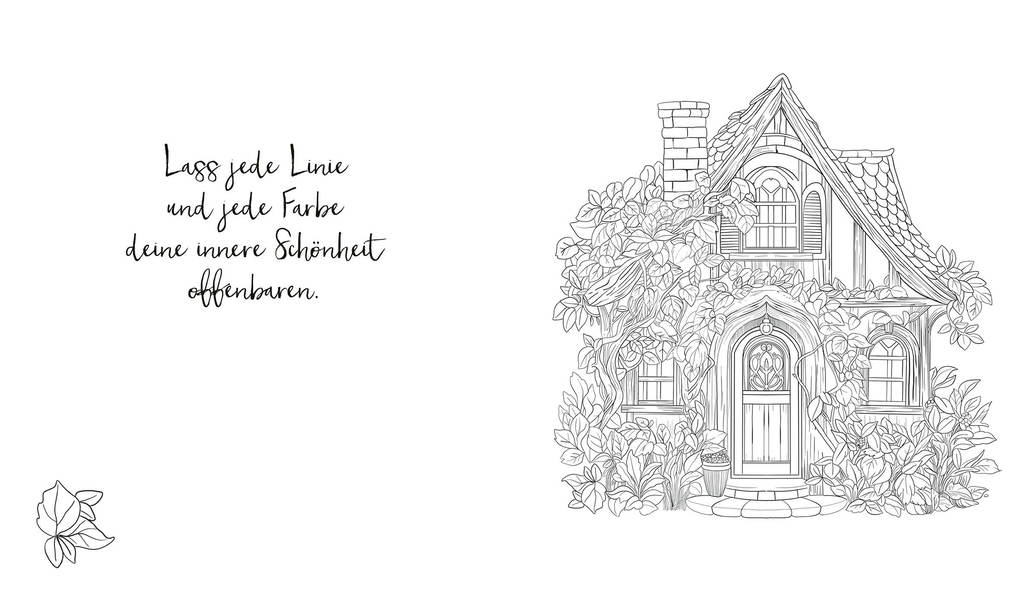 Lass jede Linie
und jede Farbe
deine innere Schönheit
offenbaren.